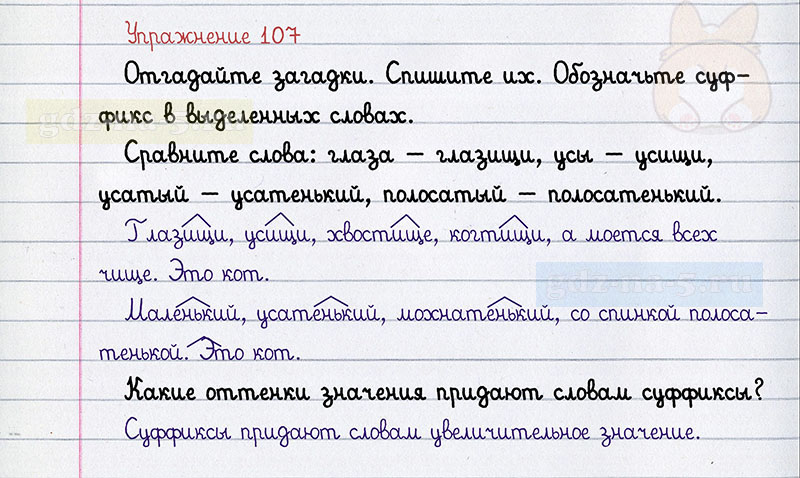 Упражнение 107
Отгадайте загадки. Спишите их. Обозначьте суф-
фикс в выделенных словах.
gdz-na-5.ru
Сравните слова: глаза – глазищи, усы – усищи,
усатый – усатенький, полосатый – полосатенький.
Глазищи, усищи, хвостище, когтищи, а моется всех
чище. Это кот.
gdz-na-5.ru
Маленький, усатенький, мохнатенький, со спинкой полоса-
тенькой. Это кот.
Какие оттенки значения придают словам суффиксы?
Суффиксы придают словам увеличительное значение.